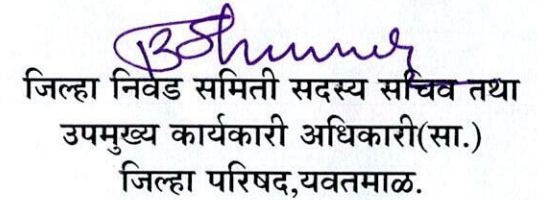 जिल्हा निवड समिती सदस्य सचिव तथा
उपमुख्य कार्यकारी अधिकारी(सा.)
जिल्हा परिषद,यवतमाळ.